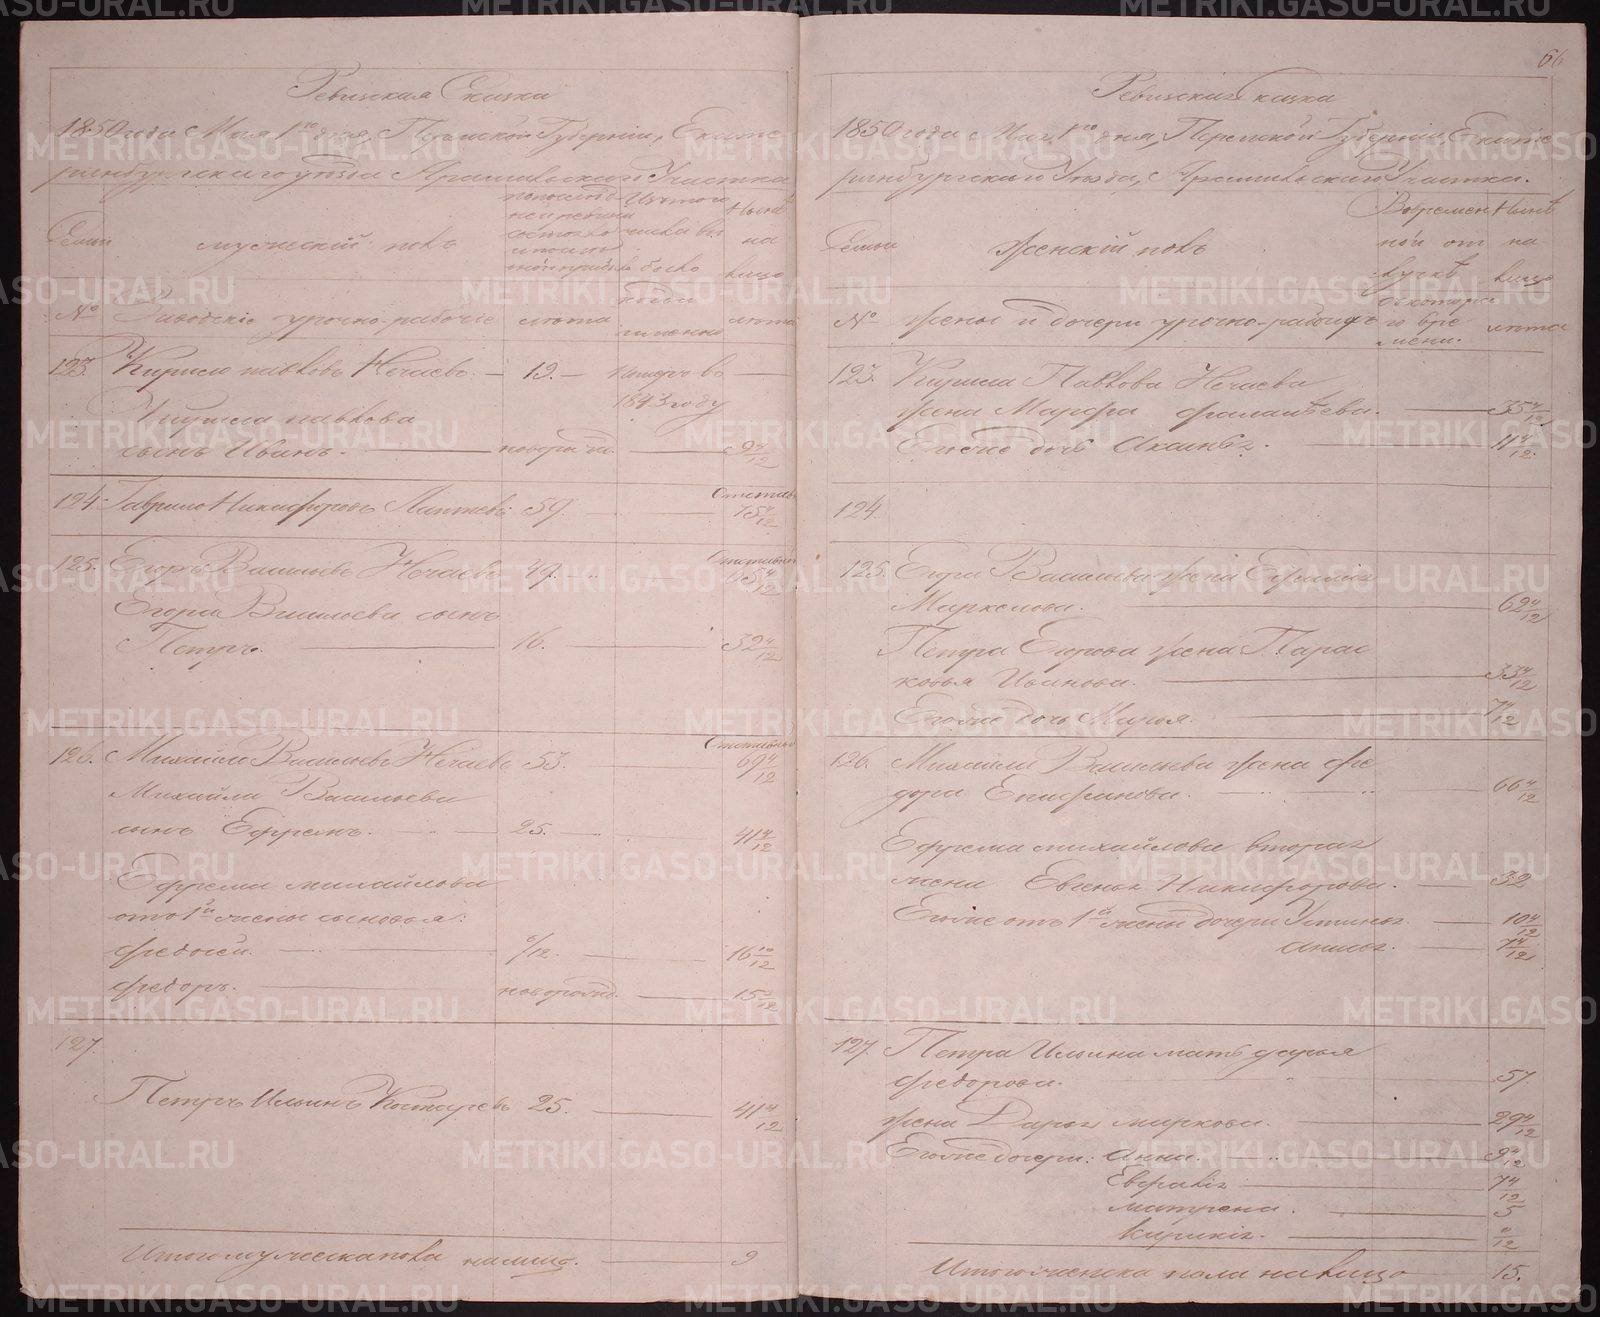 66
Ревизская Сказка
1850 года Мая 1го дня, Пермской Губерніи, Екате
ринбургскаго уезда Арамильскаго Участка
Семьи
мужескій полъ
по последн
ней ревизіи
состояло
Изъ того
числа вы
было
Ныне
на
лицо
№
Заводскіе урочно-рабочіе
лета
когда
именно
лета
123. Кирило Павловъ Нечаевъ. — 19. — померъ въ —
1843 году
Кирила Павлова
сынъ Иванъ. — новорожд. — 9 4/12
124. Гаврило Никифоровъ Лаптевъ 59. — Отставн
75 4/12
125. Егоръ Васильевъ Нечаевъ 49. — Отставной
65 4/12
Егора Васильева сынъ
Петръ. — 16. — 32 4/12
126. Михайло Васильевъ Нечаевъ 53. — Отставной
69 4/12
Михайла Васильева
сынъ Ефремъ. — 25. — 41 4/12
Ефрема Михайлова
отъ 1й жены сыновья:
Федосей. — 6/12 — 16 10/12
Федоръ. — новорожд. — 15
127.
Петръ Ильинъ Костаревъ 25. — 41 4/12
Итого мужеска пола на лицо. — 9
Ревизская Сказка
1850 года Мая 1го дня, Пермской Губерніи Екате
ринбургскаго Уезда, Арамильскаго Участка.
Семьи
Женскій полъ
Во времен
ной от
лучке
Ныне
на
лицо
№
жены и дочери урочно-рабочихъ
съ котора
го вре
мени.
лета
123. Кирила Павлова Нечаева
жена Марфа Фалалеева. — 35 4/12
Его же дочь Аксинья. — 11 4/12
124.
125. Егора Васильева жена Ефимья
Маркелова. — 62 4/12
Петра Егорова жена Парас
ковья Иванова. — 33 4/12
Его же дочь Марья. — 7 4/12
126. Михайла Васильева жена Фе
дора Епифанова. — 66 4/12
Ефрема Михайлова вторая
жена Евгенья Никифорова. — 32
Его же отъ 1й жены дочери Устинья. — 10 4/12
Анисья. — 7 4/12
127. Петра Ильина мать Дарья
Федорова. — 57
жена Дарья Маркова. — 29 4/12
Его же дочери: Анна. — 9 4/12
Евфалія — 7 4/12
Матрена. — 5
Итого женска пола на лицо — 15.
METRIKI.GASO-URAL.RU